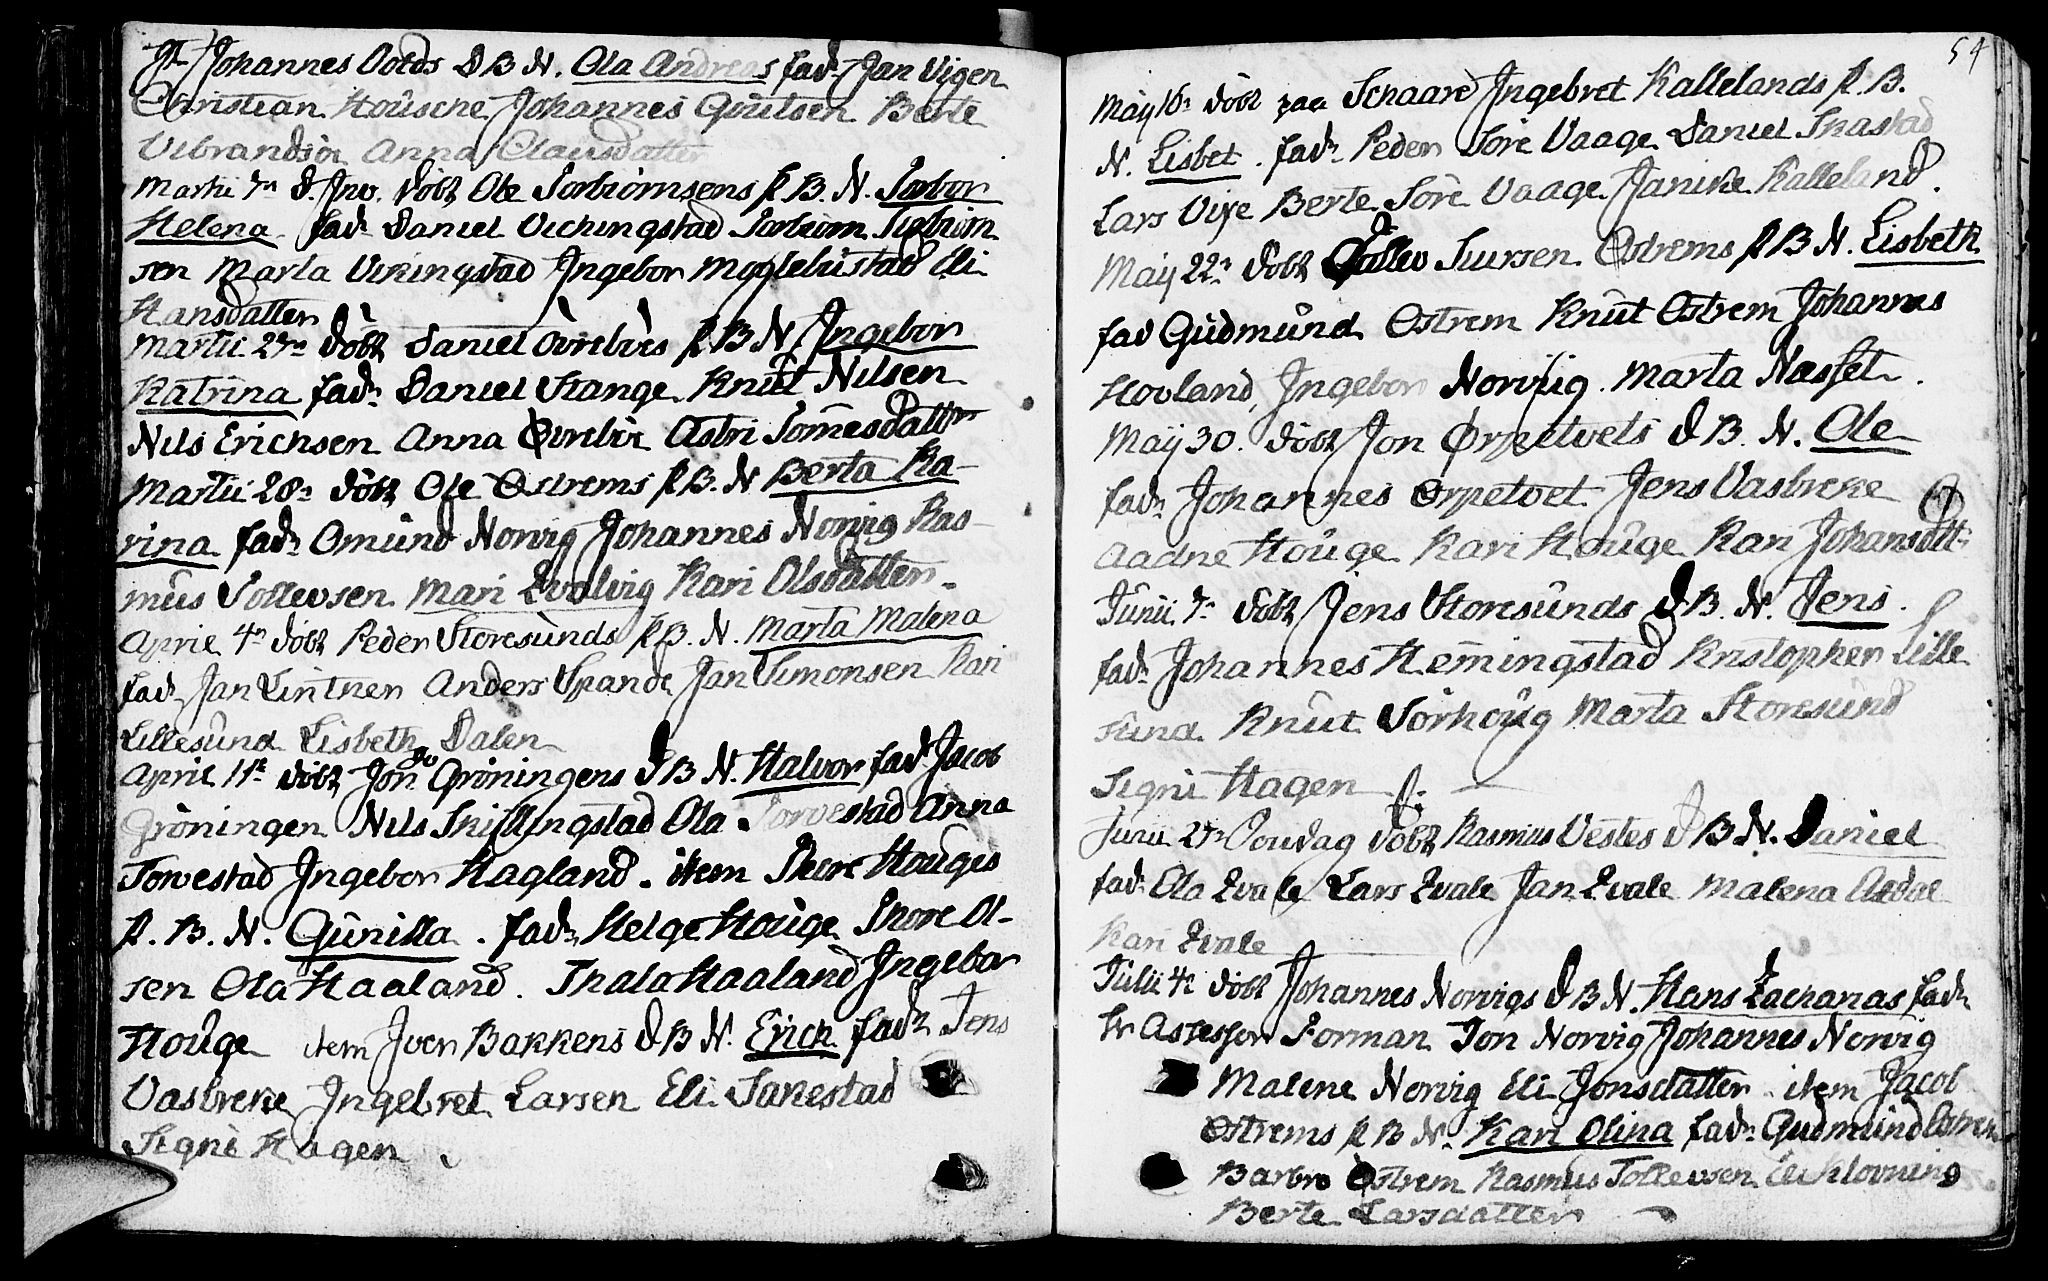 Johannes Odds D B N. Ola Andreas fadr Jan Vigen
Christian Housche Johannes Gouitsen Berte
Vibrandsör Anna Clausdatter
Martii 7n d. Inv. döbt Ole Torbiornsens P B. N. Torbor
Helena fadr Daniel Vichingstad Torbiorn Sigbiorn
sen Marta Vikingstad Ingebor Myglebustad Eli
Hansdatter
Martii 21n döbt Daniel Övreböes P B N Ingebor
Katrina fadr Daniel Stange Knut Nilsen
Nils Erichsen Anna Övreböe Astri Tomesdatter
Martii 28n döbt Ole Østrems P B. N Berta Ka-
rina fadr Omund Norvig Johannes Norvig Ras-
mus Tollevsen Mari Evalvig Kari Olsdatter
April 4n döbt Peder Storesunds P B. N. Marta Malena
fadr Jan Lintner Anders Spande Jan Simonsen Kari
Lillesund Lisbeth Dalen
April 11te döbt Jon Gröningens D B N. Halvor fadr Jacob
Gröningen Nils Skillingstad Ola Torvestad Anna
Torvestad Ingebor Hagland. item Thore Houges
P. B. N. Gunilla. fadr Helge Houge Thore Ol-
sen Ola Haaland. Thala Haaland Ingebor
Houge item Iver Bakkens D B N. Erich fadr Jens
Vasbreke Ingebret Larsen Eli Sakestad
Signe Hagen
54
Maij 16n döbt paa Schaare Ingebret Kallelands P. B.
N. Lisbet. fadr Peder Söre Vaage Daniel Skastad
Lars Vije Berte Söre Vaage Janike Kalleland.
Maij 22n döbt Tollev Siursen Østrems P B N. Lisbeth
fad Gudmund Østrem Knut Østrem Johannes
Hovland Ingebor Norvig. Marta Nasset.
Maij 30. döbt Jon Ørpetvets D B. N. Ole
fadr Johannes Ørpetvet Jens Vasbreke
Aadne Houge Kari Houge Kari Johansdtt:
Junii 7n döbt Jens Storesunds D B. N. Jens.
fadr Johannes Hemingstad Kristopher Lille
sund Knut Sörhoug Marta Storesund
Signe Hagen
Junii 27n Sondag döbt Rasmus Vestes D B N. Daniel
fadr Ola Evale Lars Evale Jan Evale Malena Aadal
Kari Evale
Julii 4n döbt Johannes Norvigs D B N. Hans Zacharias fadr
Hr Assessor Forman Jon Norvig Johannes Norvig
Malene Norvig Eli Jonsdatter item Jacob
Østrems P B N. Kari Olina fadr Gudmund Østrem
Barbro Østrem Rasmus Tollevsen Eli Klovning
Berte Larsdatter